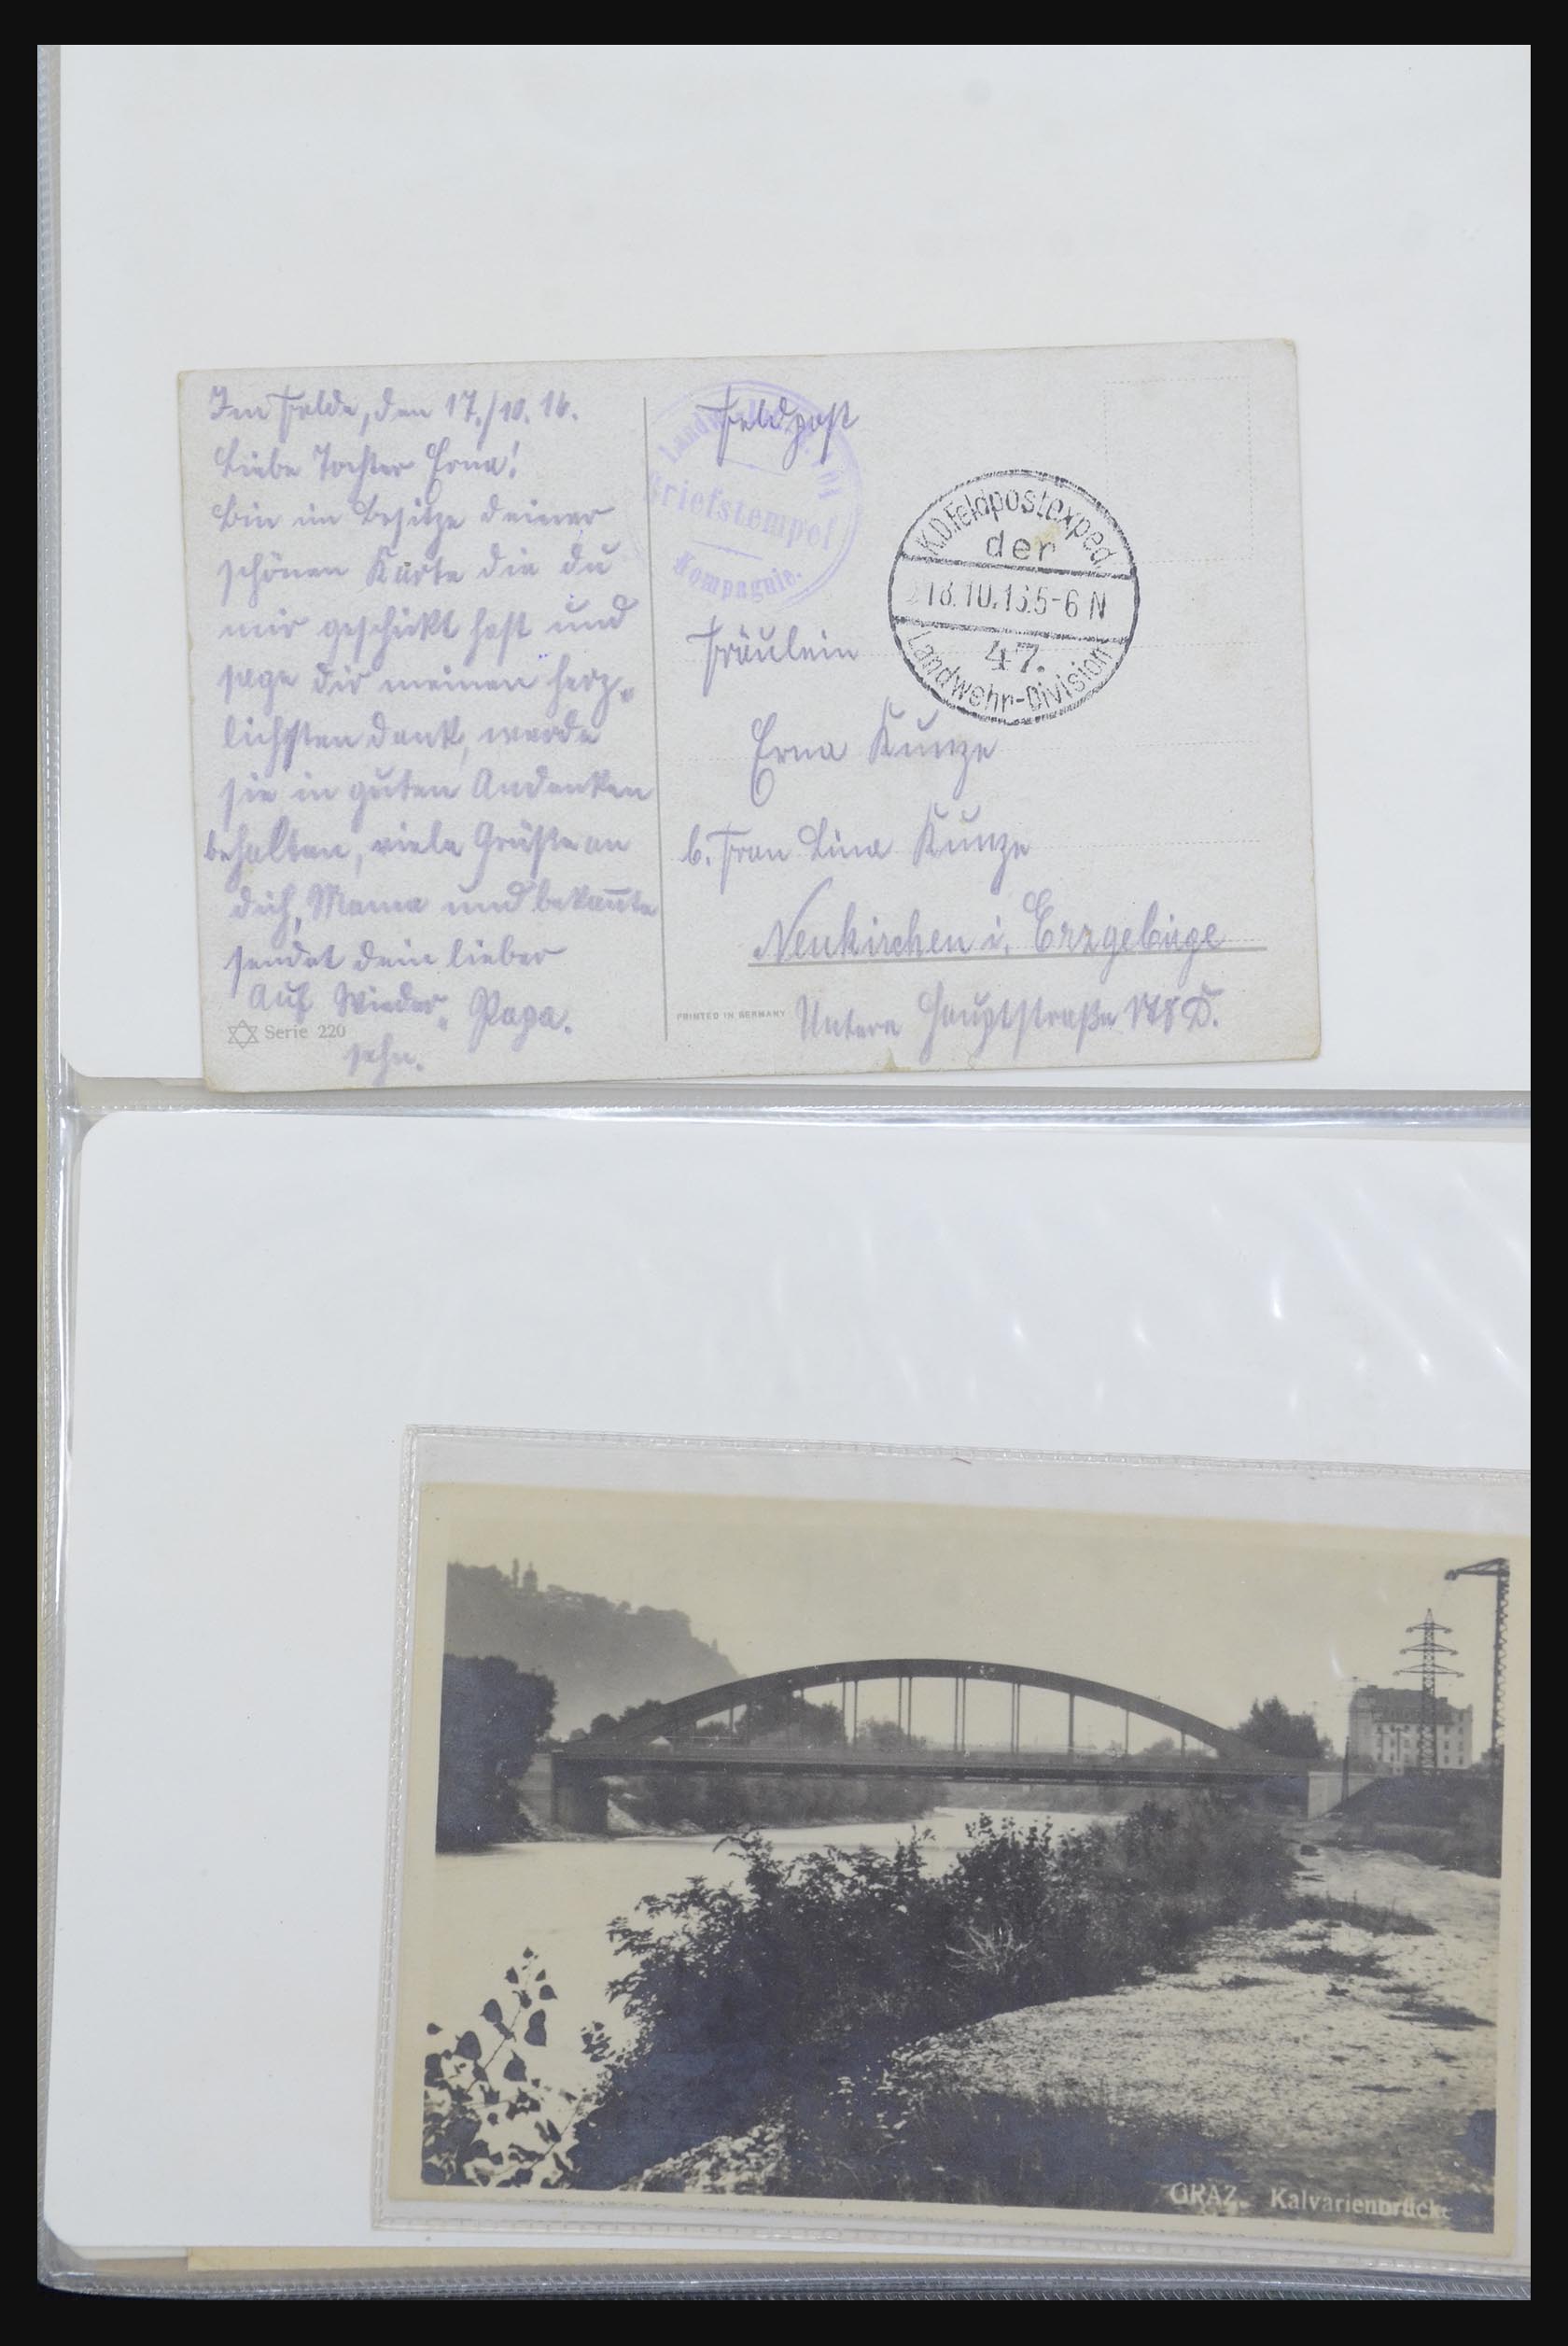 Im Felde, den 17./10. 16.
Liebe Tochter Erna!
Bin im Besitze deiner
schönen Karte die du
mir geschickt hast und
sage dir meinen herz-
lichsten Dank, werde
sie in guten Andenken
behalten, viele Grüße an
dich, Mama und bekannte
sendet dein lieber
Papa.
Auf Wieder-
sehn.
Serie 220
PRINTED IN GERMANY
Feldpost
Briefstempel
Kompagnie.
K.D. Feldpostexped.
der
18.10.16 5-6 N
47.
Landwehr-Division
Fräulein
Erna Kunze
b. Frau Lina Kunze
Neukirchen i. Erzgebirge
Untere Hauptstraße 178 D.
GRAZ. Kalvarienbrücke